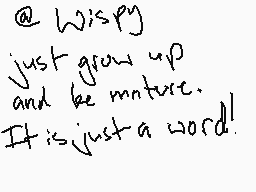 @ Wispy
just grow up
and be mature.
It is just a word!